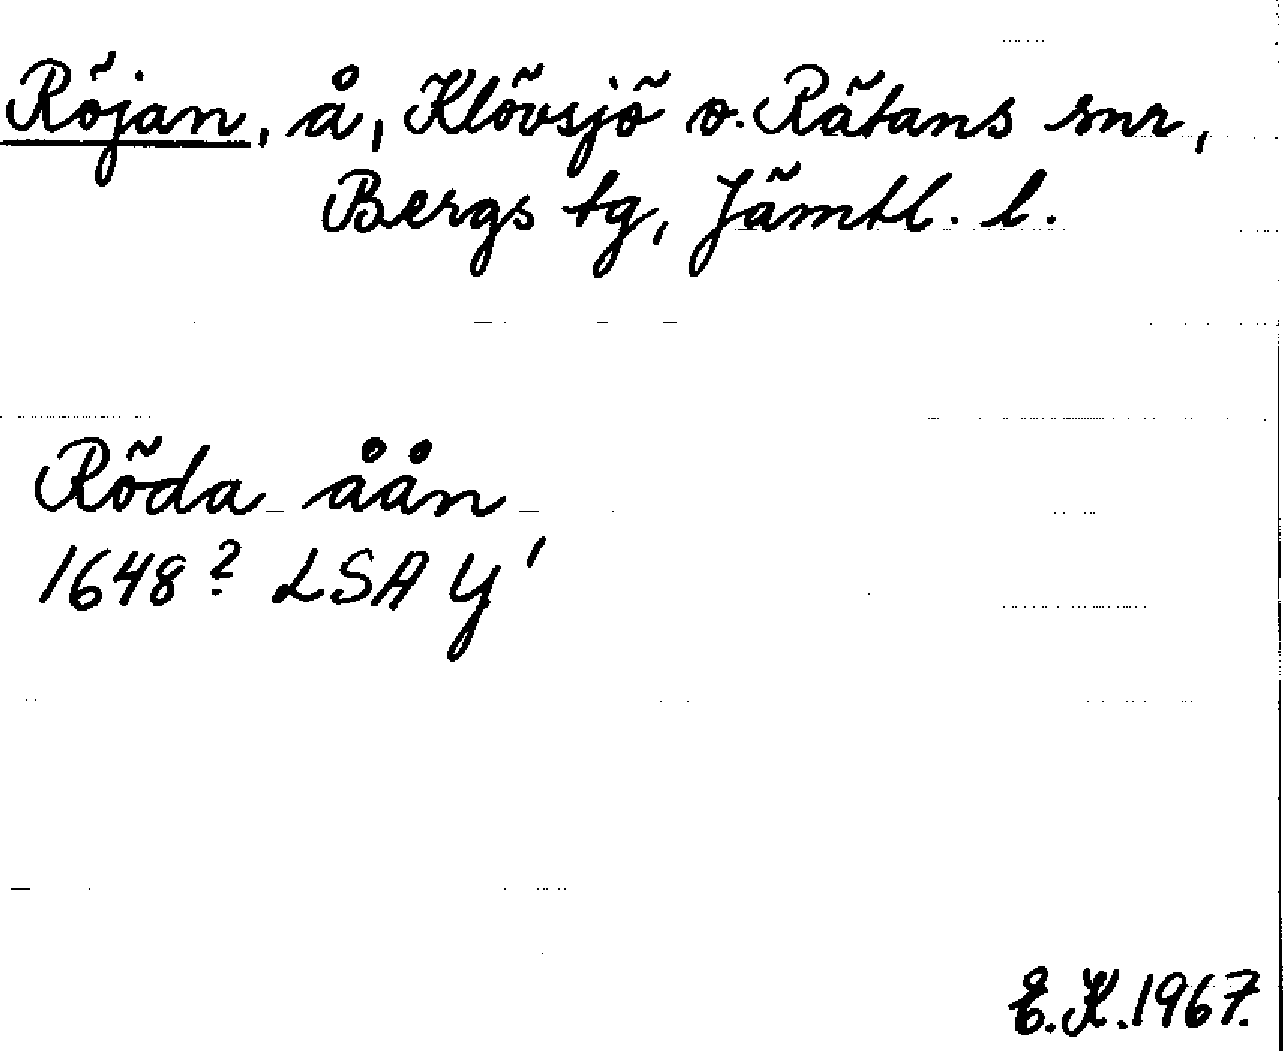 Röjan, å, Klövsjö o. Rätans snr,
Bergs tg, Jämtl. l.
Röda åån
1648? LSA Y'
E.K.1967.